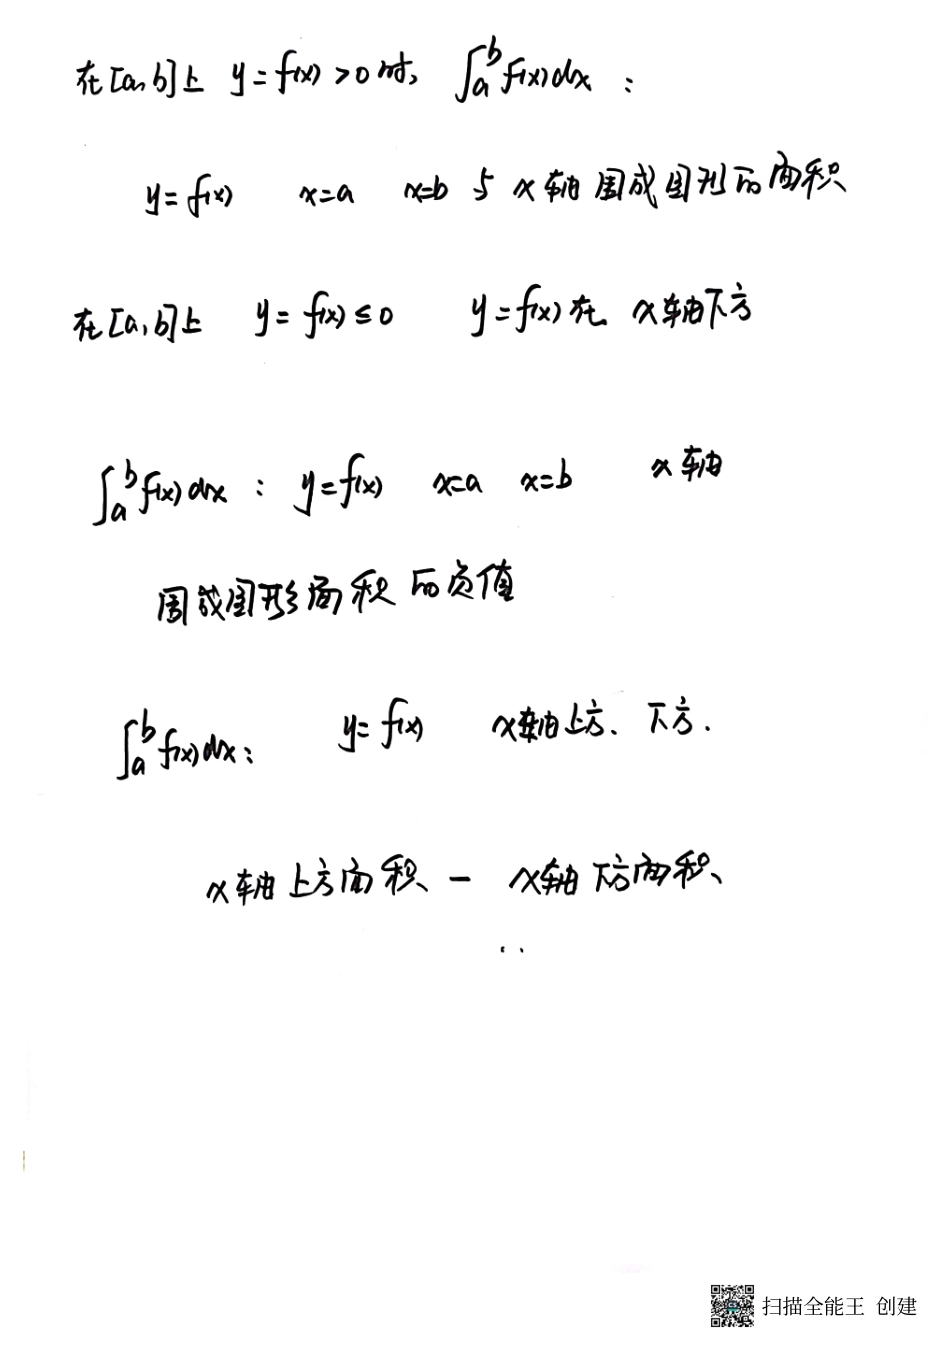 在[a,b]上 y=f(x)>0时, ∫ₐᵇf(x)dx :
y=f(x) x=a x=b 与 x轴围成图形的面积
在[a,b]上 y=f(x)≤0 y=f(x)在 x轴下方
∫ₐᵇf(x)dx : y=f(x) x=a x=b x轴
围成图形面积的负值
∫ₐᵇf(x)dx: y=f(x) x轴上方、下方.
x轴上方面积 - x轴下方面积
扫描全能王 创建